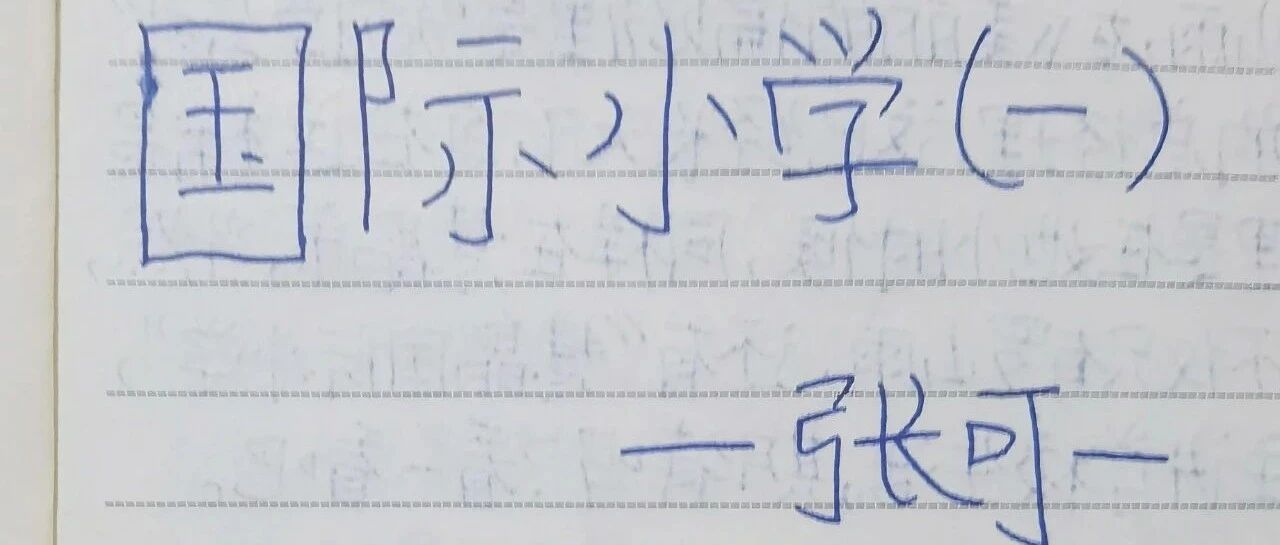 国际小学(一)
—张可一